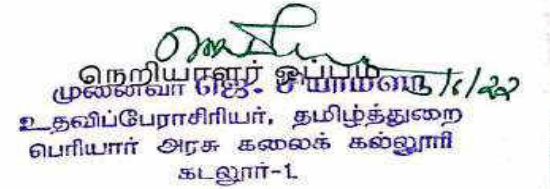 நெறியாளர் ஒப்பம்
முனைவர் ஜெ.
உதவிப்பேராசிரியர், தமிழ்த்துறை
பெரியார் அரசு கலைக் கல்லூரி
கடலூர்-1